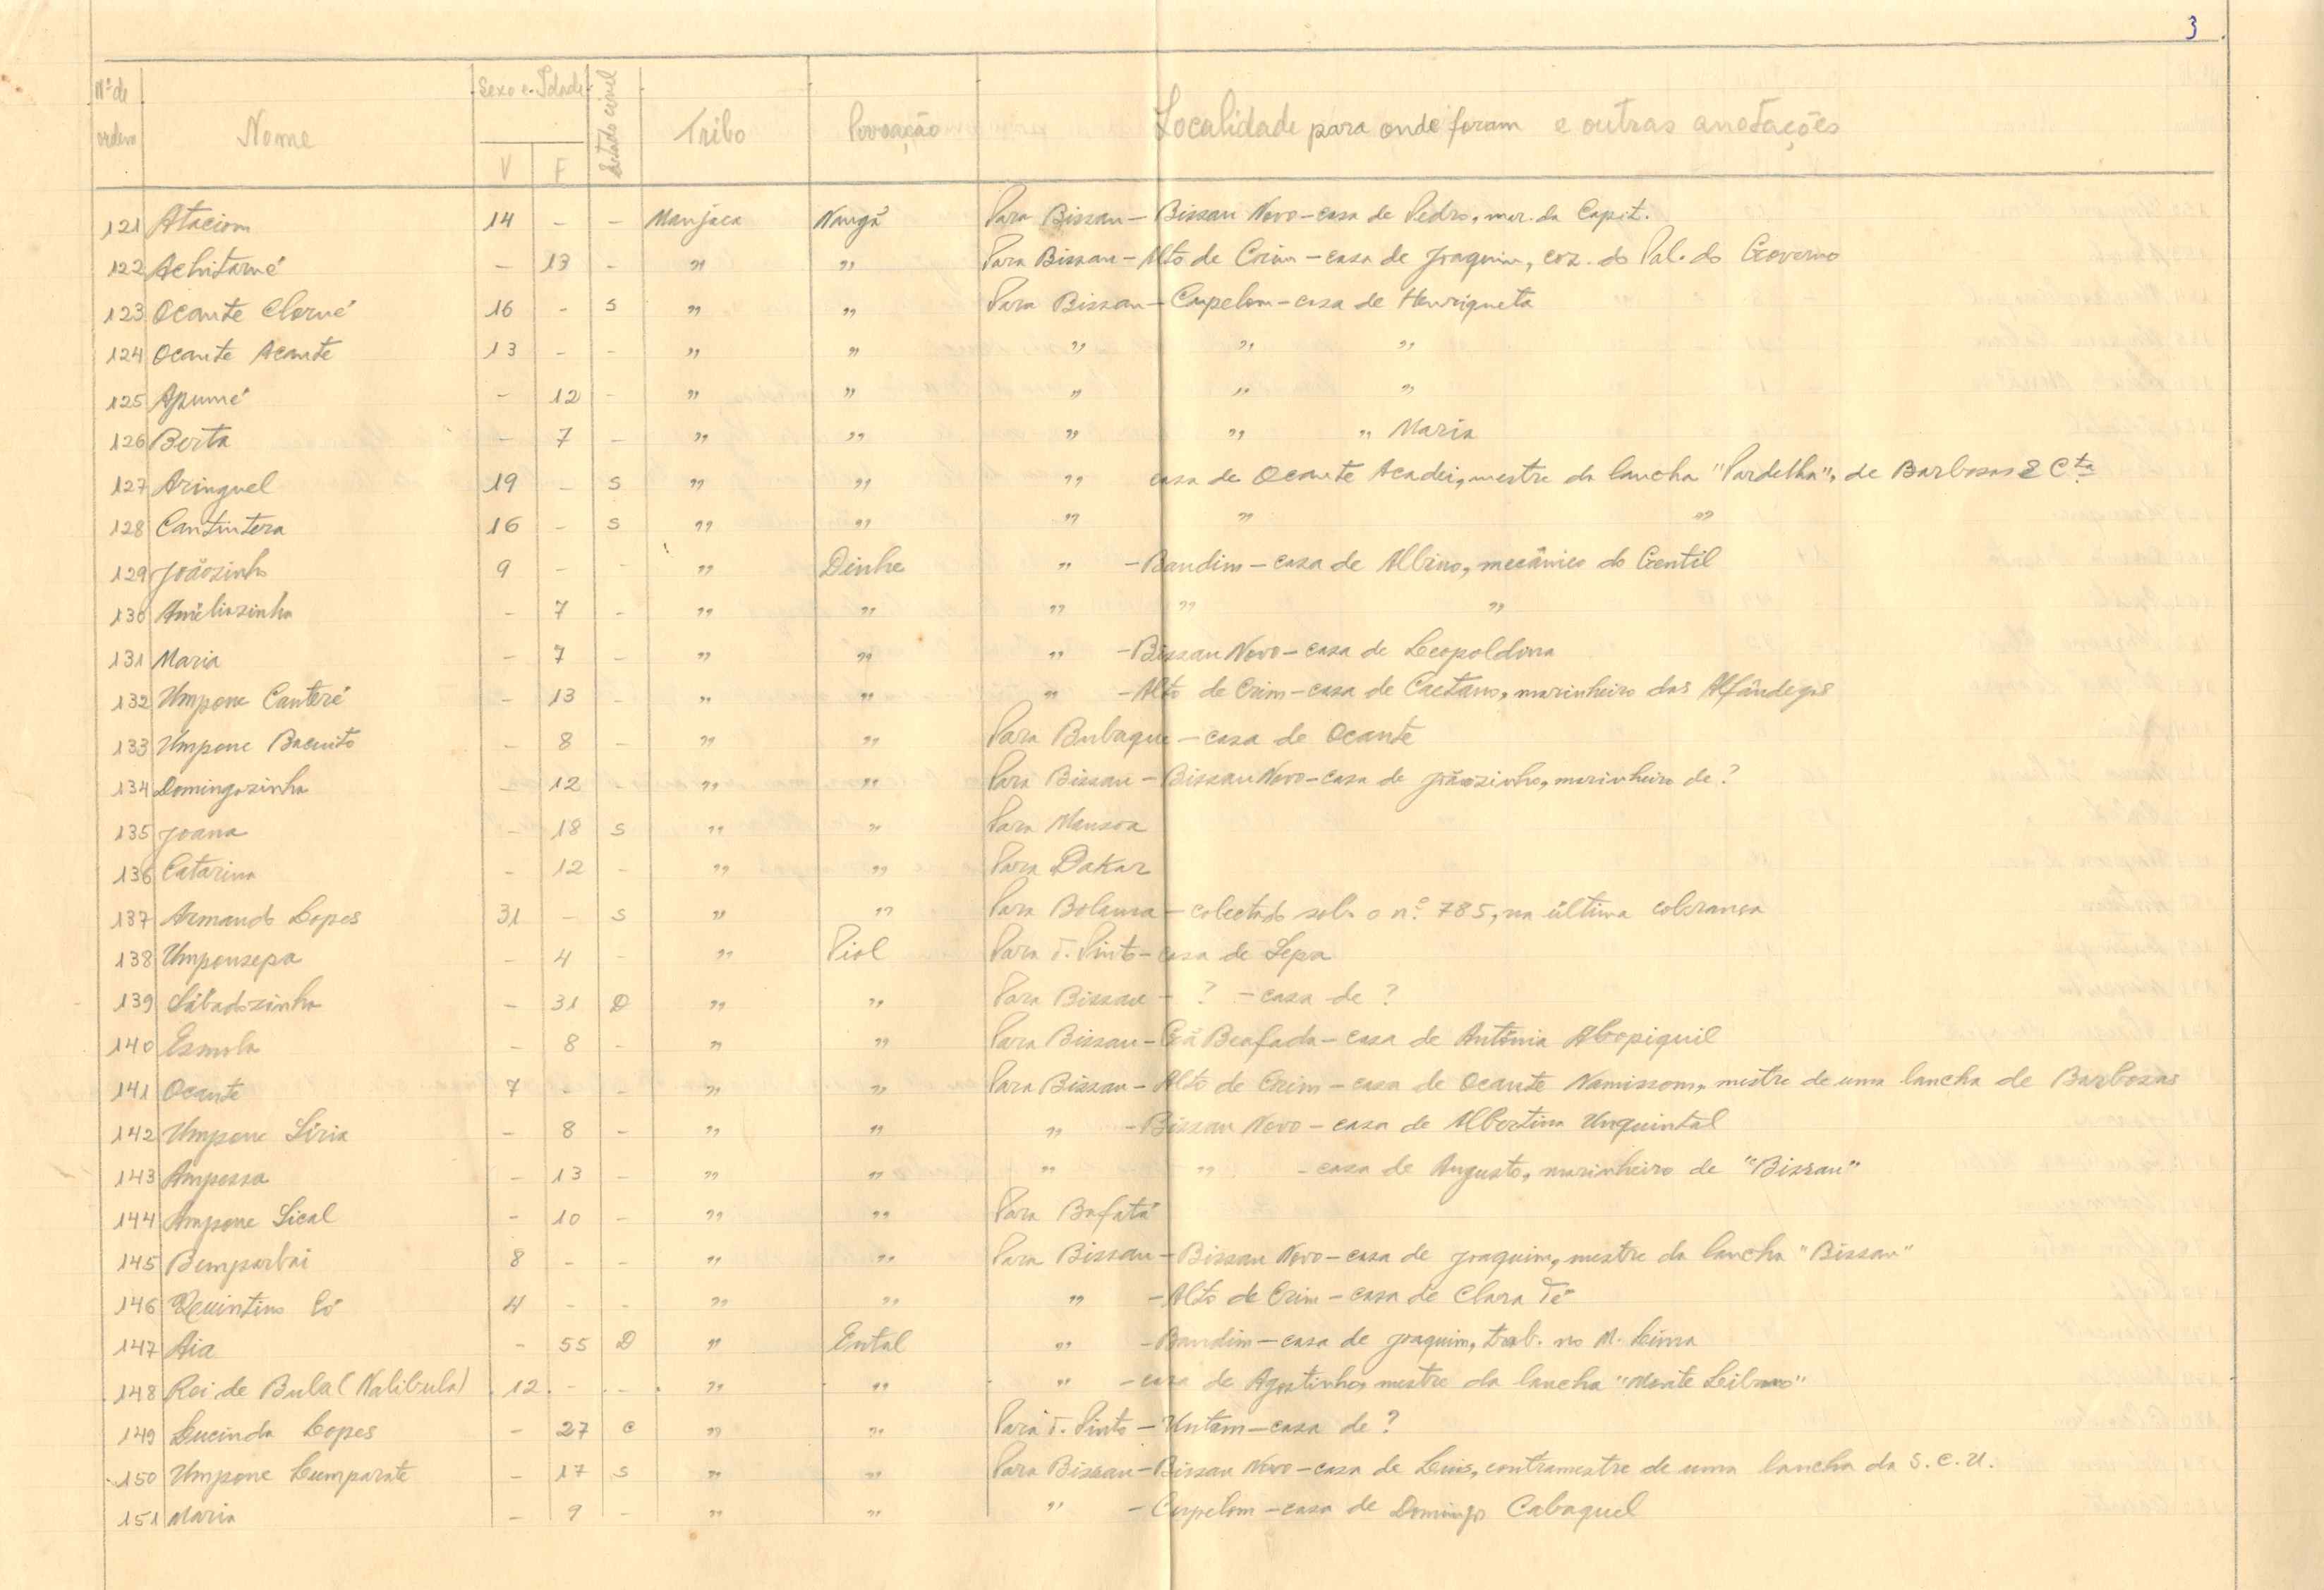 3
Nº de ordem Nome Sexo e Idade V F Estado civil Tribo Povoação Localidade para onde foram e outras anotações
121 Ataciom 14 - - Manjaca Nangã Para Bissau - Bissau Novo - casa de Pedro, mar. da Capit.
122 Achitamé - 13 - " " Para Bissau - Alto de Crim - casa de Joaquim, coz. do Pal. do Governo
123 Ocante Clorné 16 - S " " Para Bissau - Cupelom - casa de Henriqueta
124 Ocante Acante 13 - - " " " " "
125 Apumé - 12 - " " " " "
126 Berta - 7 - " " " " " Maria
127 Aringuel 19 - S " " " casa de Ocante Acadei, mestre da lancha "Pardelha", de Barbosas & Cta
128 Cantintera 16 - S " " " " "
129 Joãozinho 9 - - " Dinhe " - Bandim - casa de Albino, mecânico do Gentil
130 Améliazinha - 7 - " " " " "
131 Maria - 7 - " " " - Bissau Novo - casa de Leopoldina
132 Umpone Canteré - 13 - " " " - Alto de Crim - casa de Caetano, marinheiro das Alfândegas
133 Umpone Bacuito - 8 - " " Para Bubaque - casa de Ocante
134 Domingazinha - 12 - " " Para Bissau - Bissau Novo - casa de Joãozinho, marinheiro de ?
135 Joana - 18 S " " Para Mansoa
136 Catarina - 12 - " " Para Dakar
137 Armando Lopes 31 - S " " Para Bolama - colectado sob o nº 785, na última cobrança
138 Umponsepa - 4 - " Piol Para T. Pinto - casa de Sepa
139 Sábadozinha - 31 D " " Para Bissau - ? - casa de ?
140 Esmola - 8 - " " Para Bissau - Gã Beafada - casa de Antónia Abopiquil
141 Ocante 7 - - " " Para Bissau - Alto de Crim - casa de Ocante Namissom, mestre de uma lancha de Barbosas
142 Umpone Síria - 8 - " " " - Bissau Novo - casa de Albertina Unquintal
143 Ampessa - 13 - " " " " - casa de Augusto, marinheiro de "Bissau"
144 Ampone Sical - 10 - " " Para Bafatá
145 Bemparbai 8 - - " " Para Bissau - Bissau Novo - casa de Joaquim, mestre da lancha "Bissau"
146 Quintino Có 4 - - " " " - Alto de Crim - casa de Clara Té
147 Aia - 55 D " Ental " - Bandim - casa de Joaquim, trab. no M. Lima
148 Rei de Bula (Nalibula) 12 - - " " " - casa de Agostinho, mestre da lancha "Monte Líbano"
149 Lucinda Lopes - 27 C " " Para T. Pinto - Untem - casa de ?
150 Umpone Lumparate - 17 S " " Para Bissau - Bissau Novo - casa de Luis, contramestre de uma lancha da S. C. U.
151 Maria - 9 - " " " - Cupelom - casa de Domingo Cabaquel